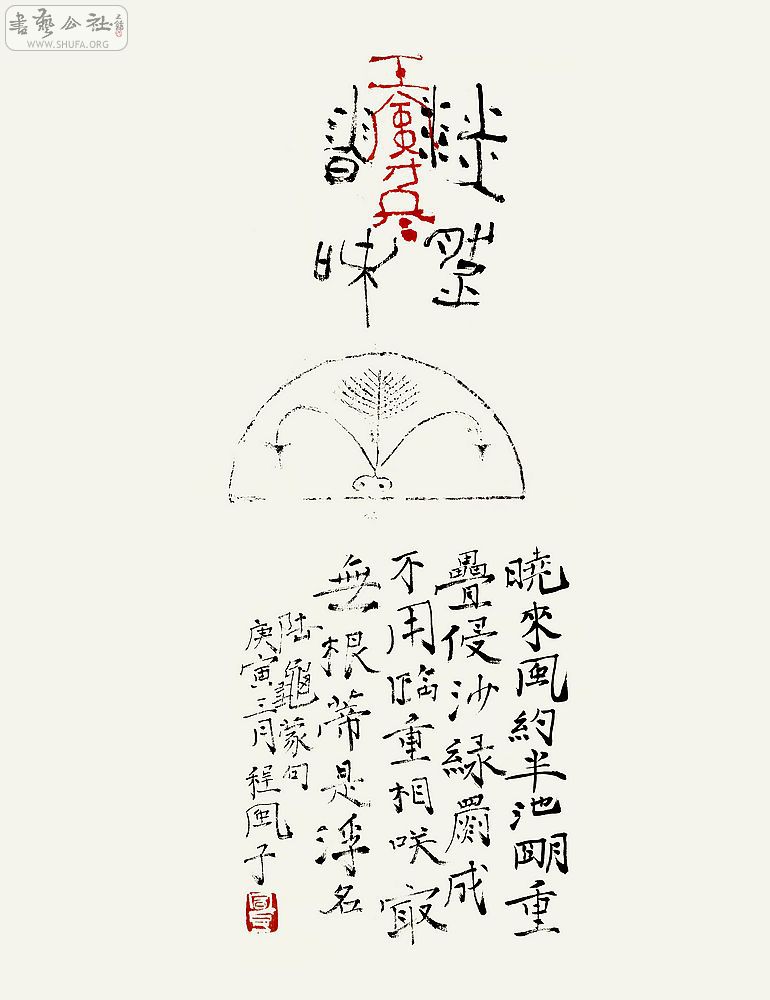 書藝公社
WWW.SHUFA.ORG
曉來風約半池朙重
疊侵沙緑罽成
不用臨重相咲㝡
無根蒂是浮名
陸龜蒙句
庚寅三月程風子